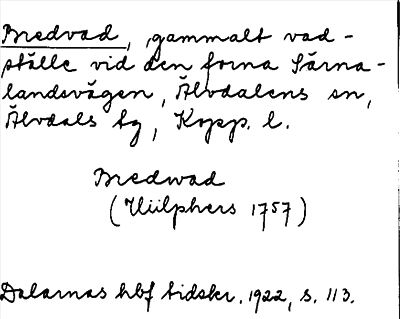 Bredvad, gammalt vad-
ställe vid den forna Särna-
landsvägen, Älvdalens sn,
Älvdals tg, Kopp. l.
Bredwad
(Hülphers 1757)
Dalarnas hbf tidskr. 1922, s. 113.